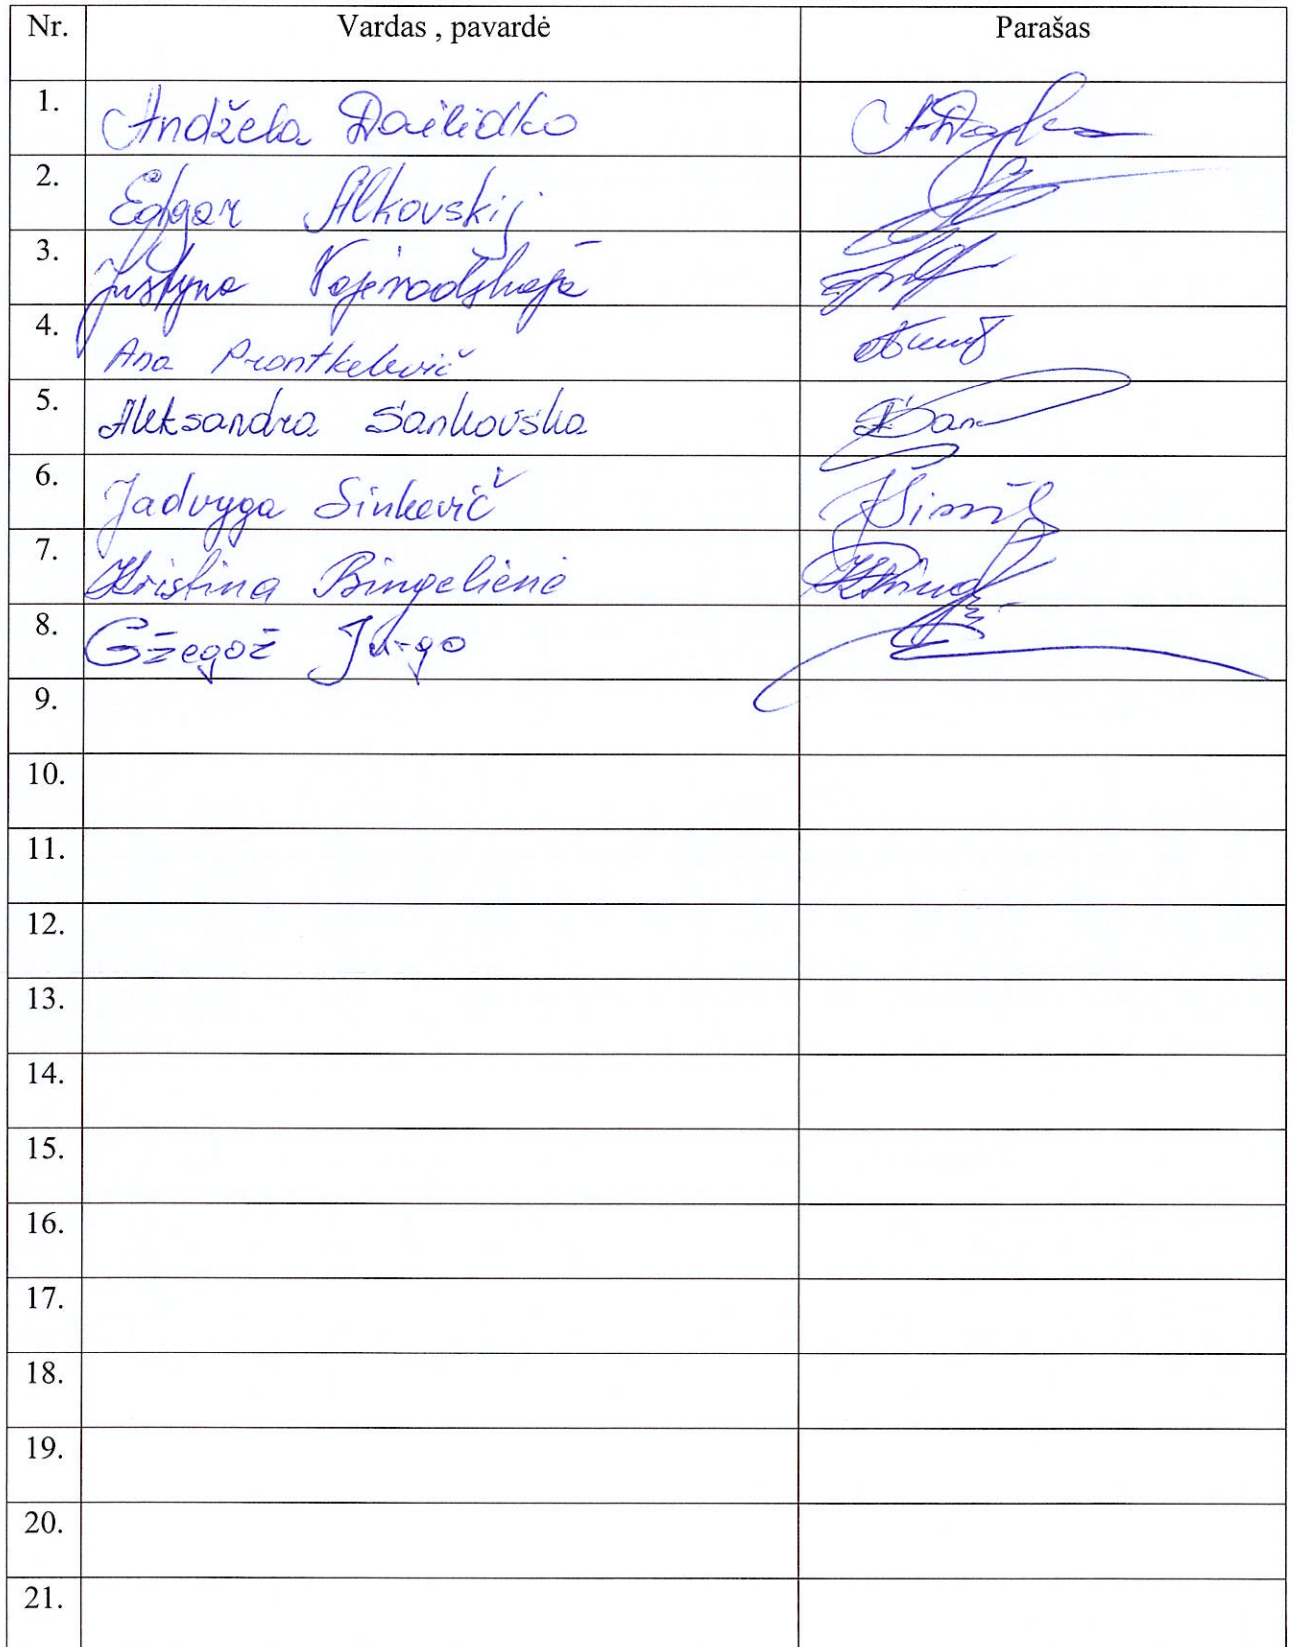 Nr. Vardas , pavardė Parašas
1. Andžela Dailidko
2. Edgar Alkovskij
3. Justyna
4. Ana Prontkelevič
5. Aleksandra Sankovska
6. Jadvyga Sinkevič
7. Kristina Bingelienė
8. Gžegož Jurgo
9.
10.
11.
12.
13.
14.
15.
16.
17.
18.
19.
20.
21.